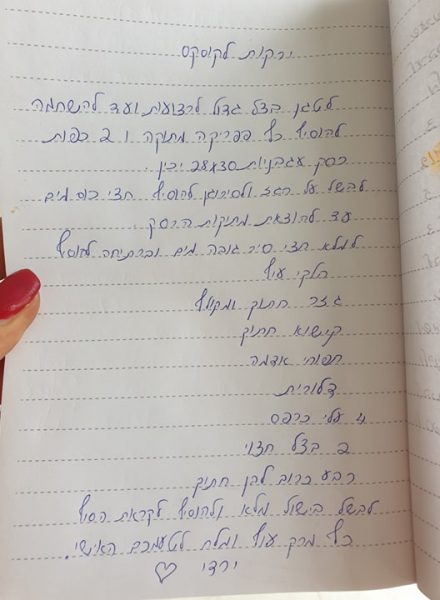 ירקות לקוסקס
לטגן בצל גדול לרצועות ועד להשחמה
להוסיף כף פפריקה מתוקה ו 2 כפות
רסק עגבניות 22-28 יכין.
לבשל על הגז ולסירוגין להוסיף חצי כוס מים
עד להוצאת מתיקות הרסק.
למלא חצי סיר גובה מים וברתיחה להוסיף
חלקי עוף
גזר חתוך ומקולף
קישוא חתוך
תפוחי אדמה
דלורית
4 עלי כרפס
2 בצל חצוי
רבע כרוב לבן חתוך
לבשל בישול מלא ולהוסיף לקראת הסוף
כף מרק עוף ומלח לטעמכם האישי.
ירדי ♡